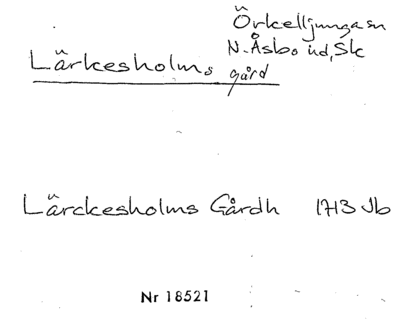 Örkelljunga sn
N. Åsbo hd, Sk
Lärkesholms gård
Lärckesholms Gårdh 1713 Jb
Nr 18521